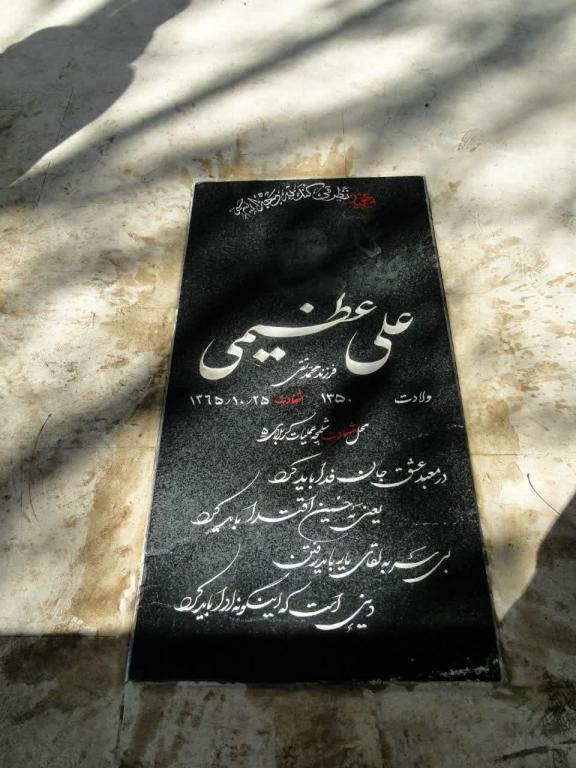 شهید نظر می‌کند به وجه الله
علی عظیمی
فرزند محمدتقی
ولادت ۱۳۵۰ شهادت ۱۳۶۵/۱۰/۲۵
محل شهادت شلمچه عملیات کربلای ۵
در معبد عشق جان فدا باید کرد
یعنی به حسین اقتدا باید کرد
بی سر به لقای یار باید رفتن
دینی است که اینگونه ادا باید کرد